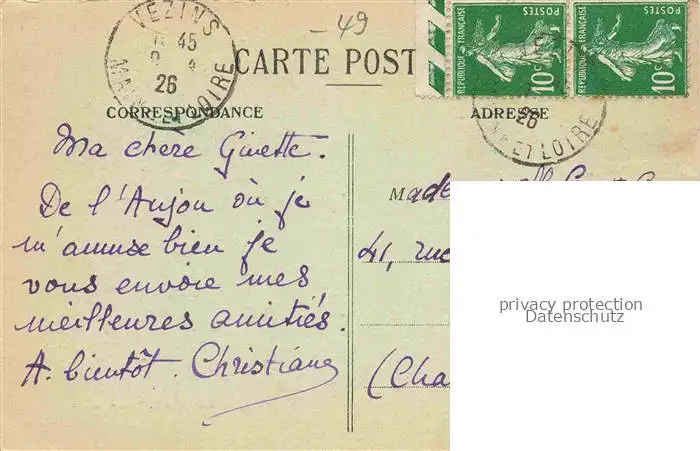 VEZINS
45
4
26
MAINE ET LOIRE
-49
CARTE POST
REPUBLIQUE FRANÇAISE
POSTES
10c
REPUBLIQUE FRANÇAISE
POSTES
10c
26
ET LOIRE
CORRESPONDANCE
ADRESSE
Ma chere Ginette.
De l'Anjou où je
m'amuse bien je
vous envoie mes
meilleures amitiés.
A bientôt. Christiane
Made
41, rue
(Cha
privacy protection
Datenschutz